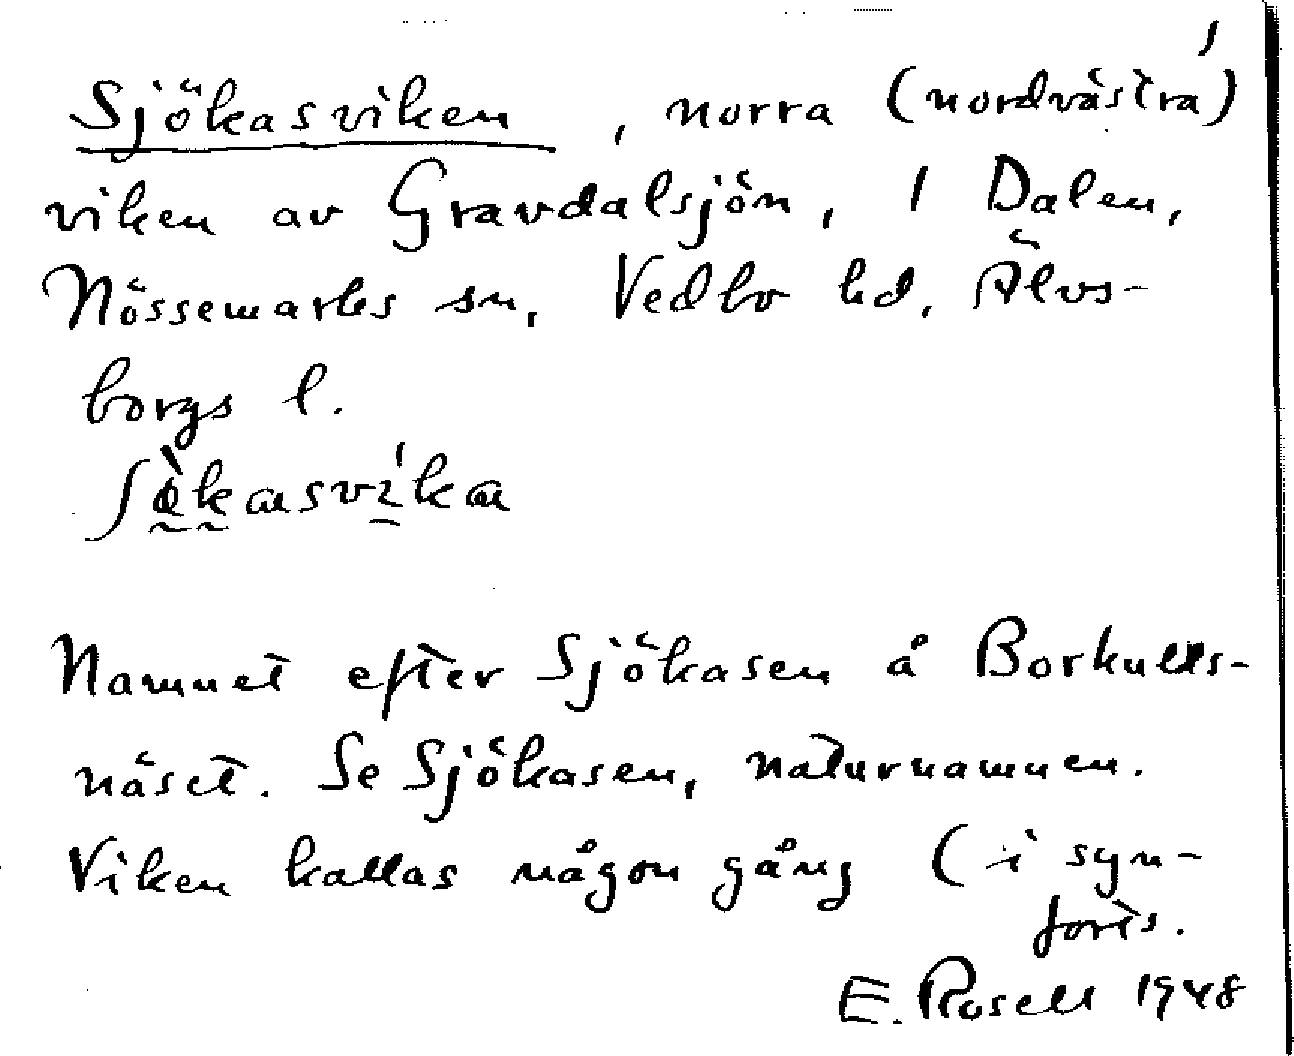 1
Sjökasviken, norra (nordvästra)
viken av Gravdalsjön, 1 Dalen,
Nössemarks sn, Vedbo hd, Älvs-
borgs l.
ʃø̀kasvíka
Namnet efter Sjökasen å Borkulls-
näset. Se Sjökasen, naturnamnen.
Viken kallas någon gång (i syn-
forts.
E. Rosell 1948